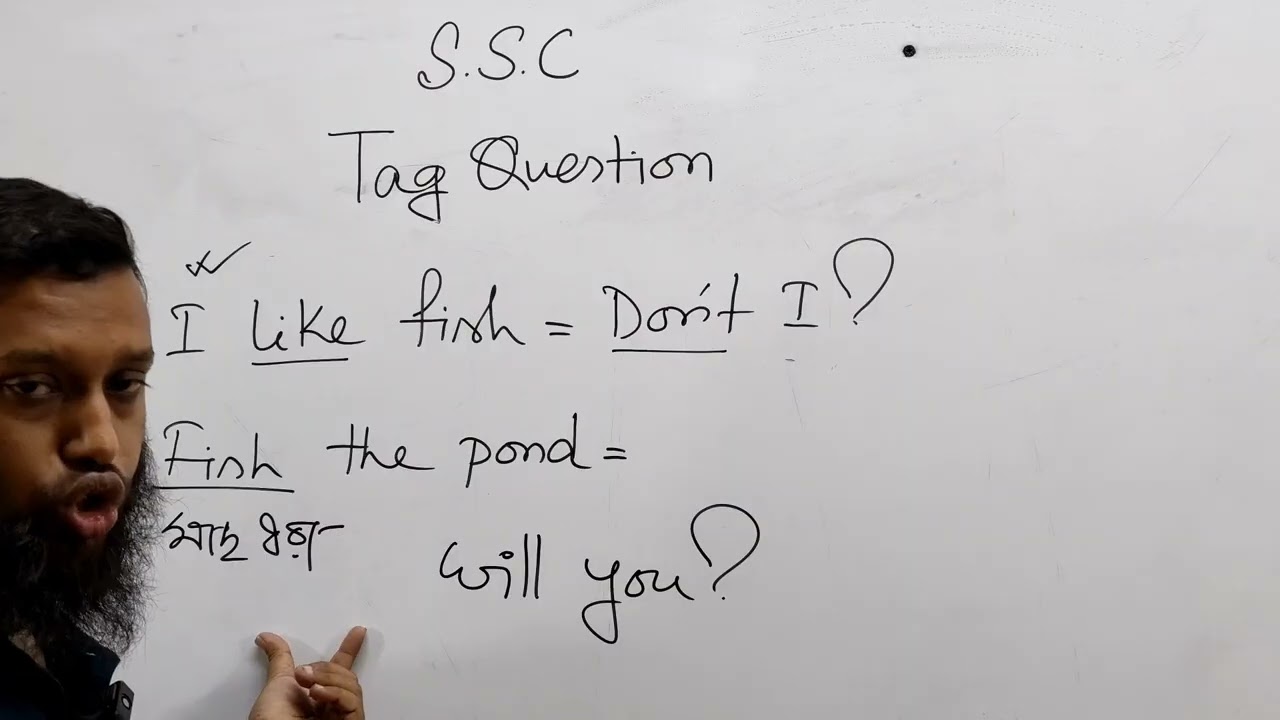 S.S.C
Tag Question
I like fish = Don't I?
Fish the pond =
মাছ ধরা
will you?